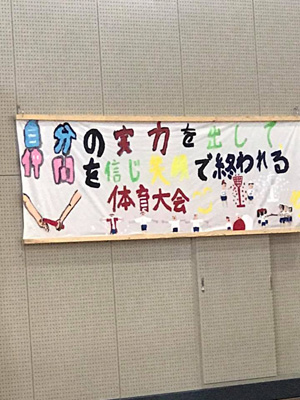 自分の実力を出して、
仲間を信じ笑顔で終われる
体育大会